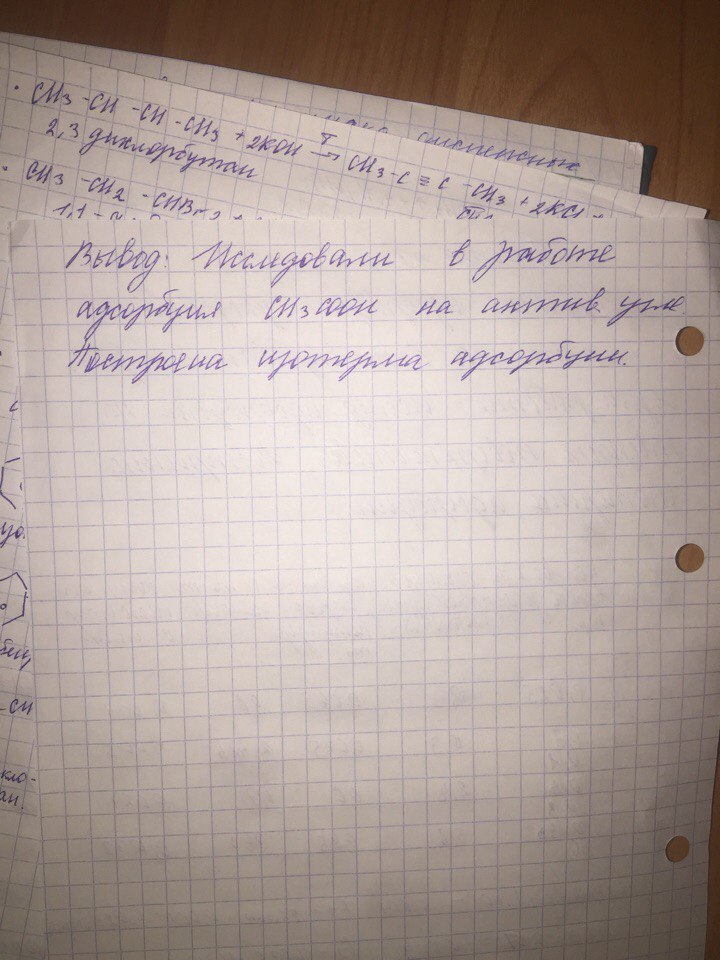 CH3 -CH -CH -CH3 + 2KOH T→ CH3-C ≡ C -CH3 + 2KCl
2,3 дихлорбутан
CH3 -CH2 -CHBr
Вывод: Исследовали в работе
адсорбция CH3COOH на актив. угле
Построена изотерма адсорбции.